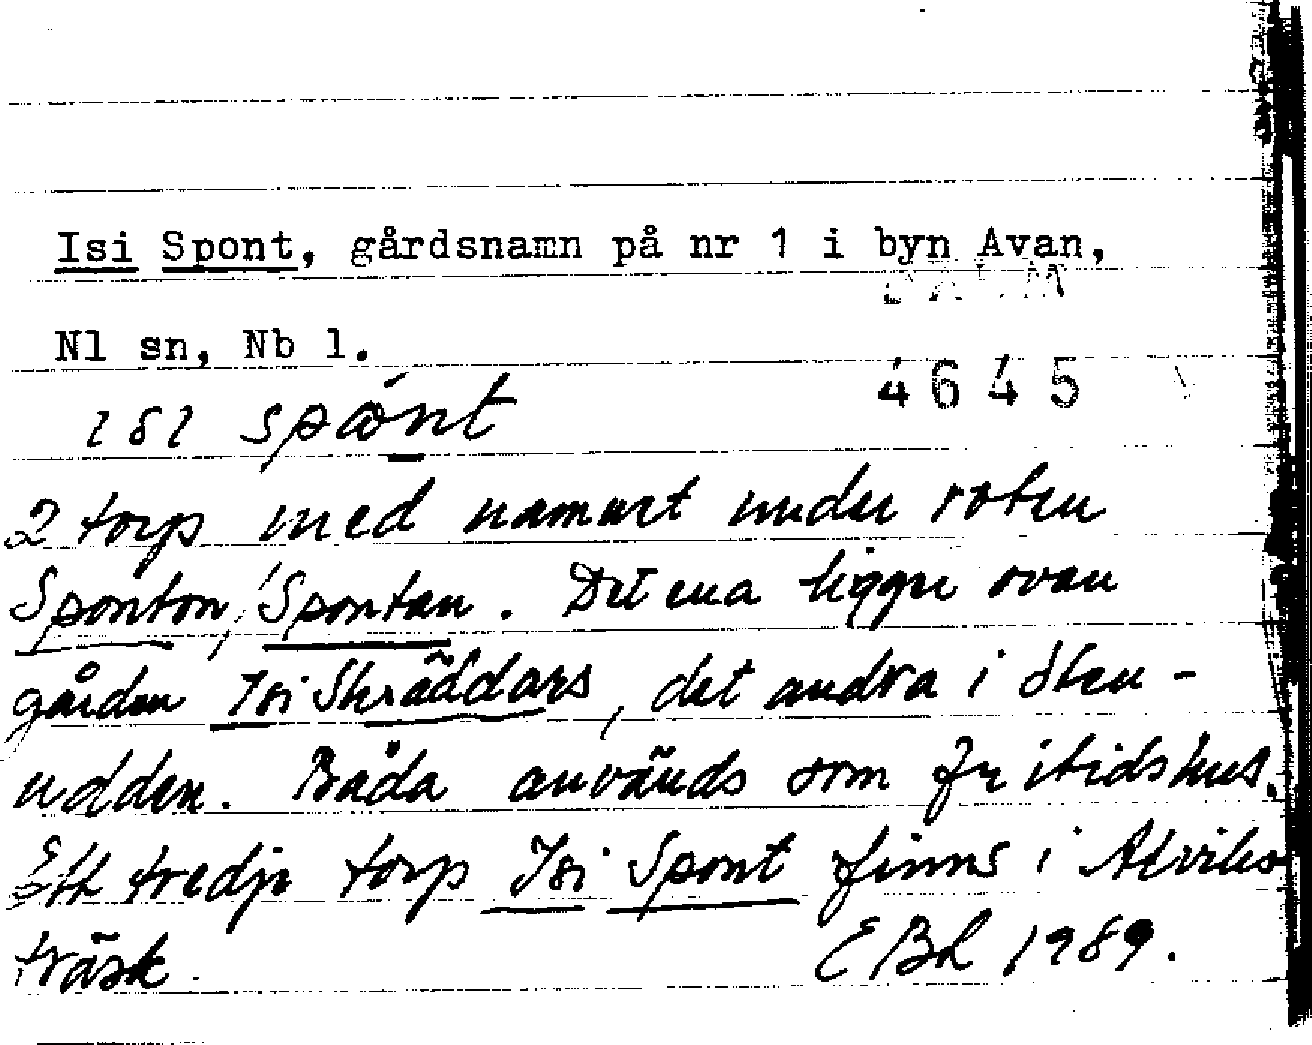 Isi Spont, gårdsnamn på nr 1 i byn Avan,
Nl sn, Nb l.
4645
ısı
2 torp med namnet under roten
Sponton, Spontan. Det ena ligger ovan
gården Isi Skräddars, det andra i Sten-
udden. Båda används som fritidshus.
Ett tredje torp Isi Spont finns i Alviks
träsk.
EBL 1989.